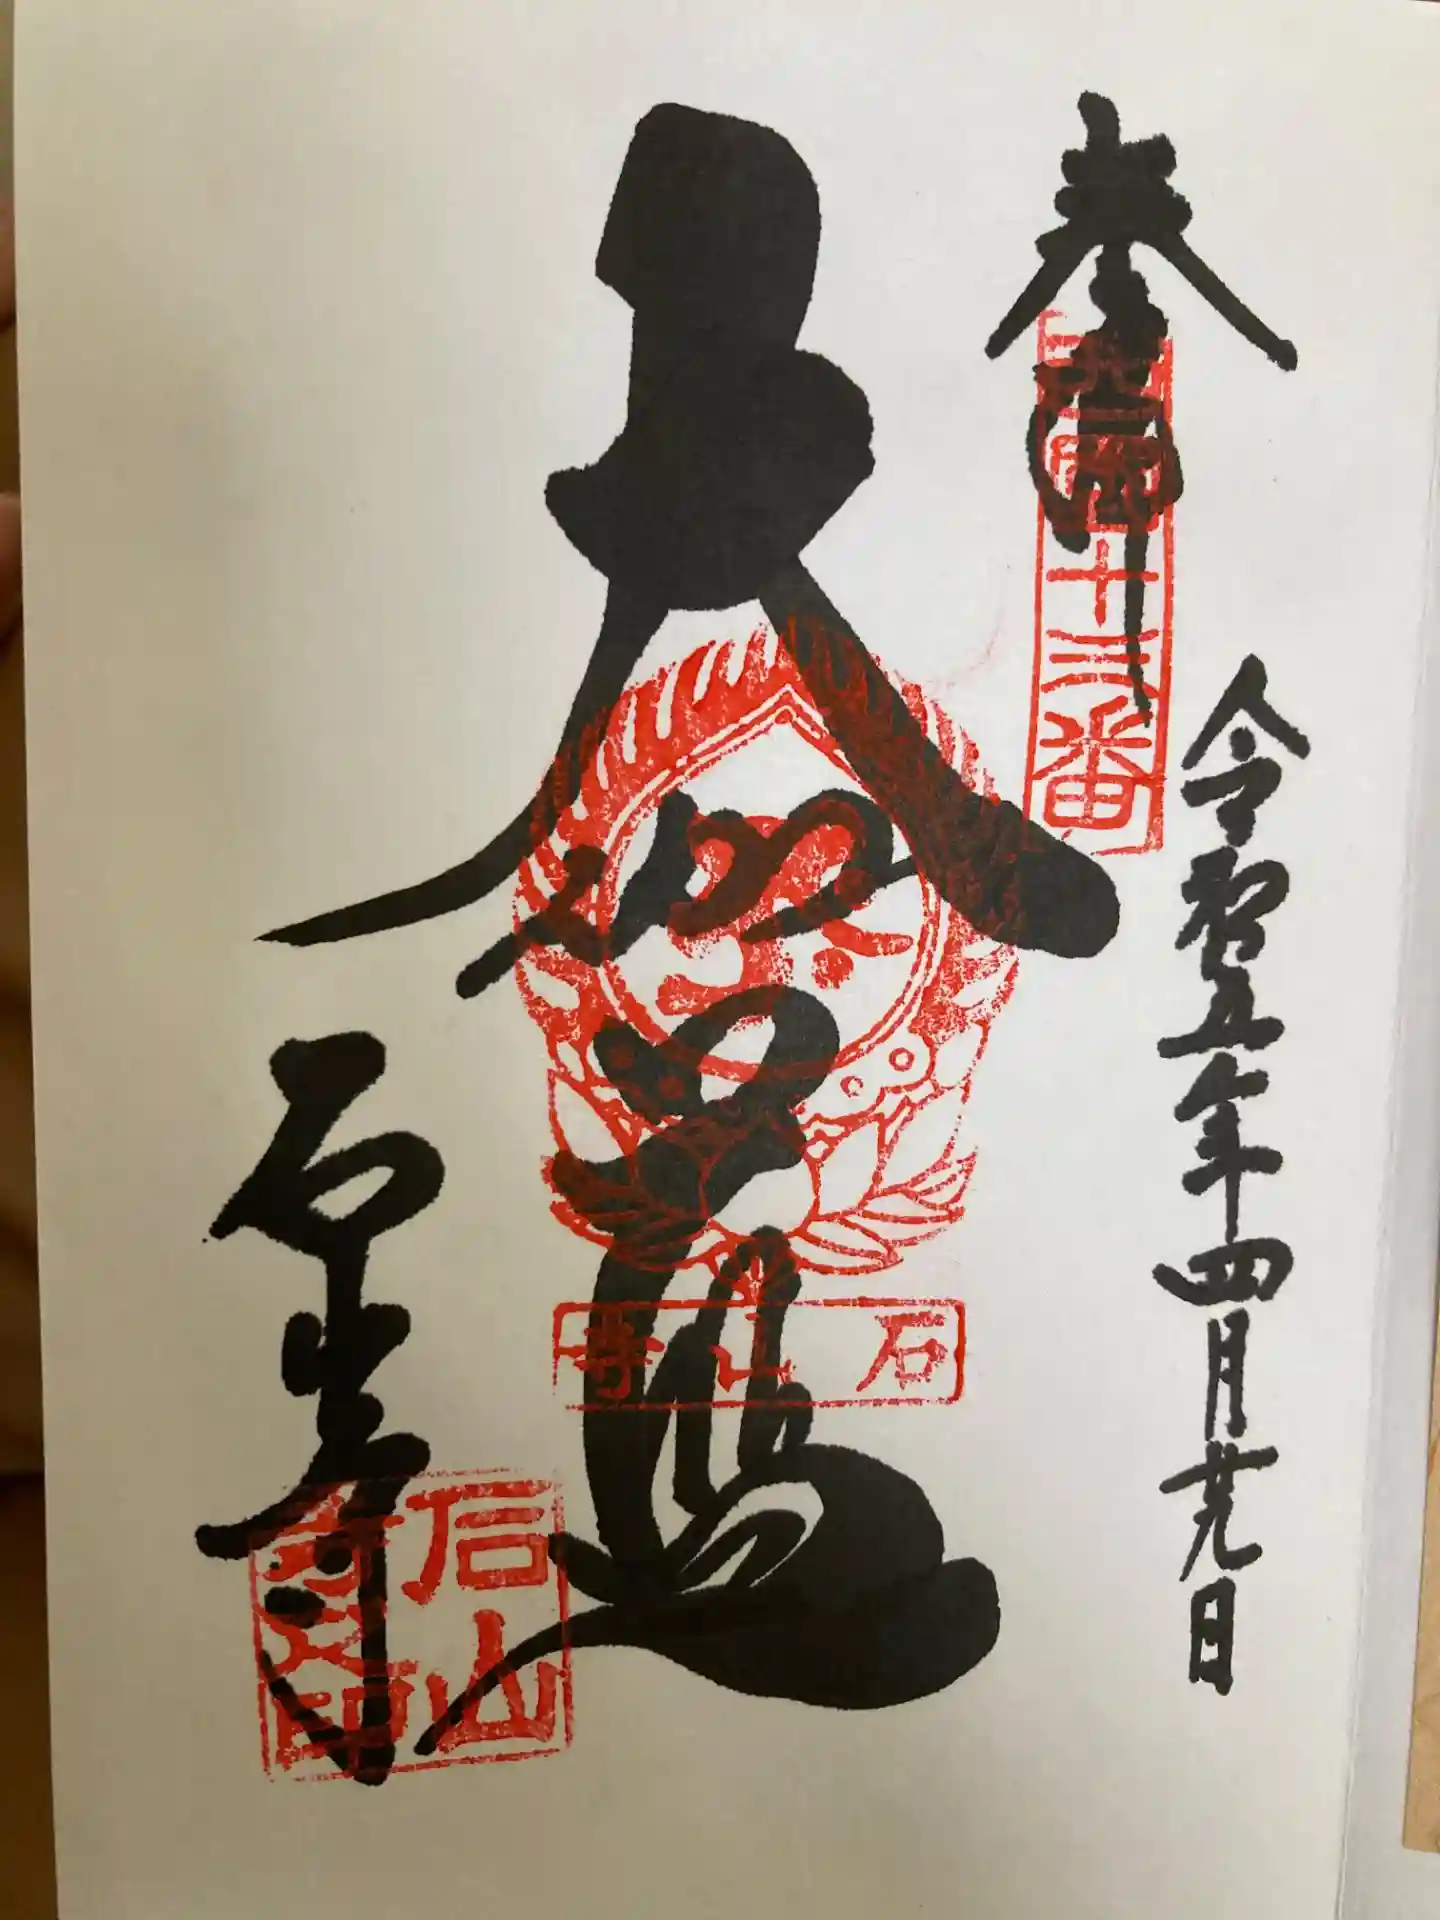 奉拝
西国十三番
令和五年四月廿九日
大伽藍
石山寺
石山寺
石山
寺之印